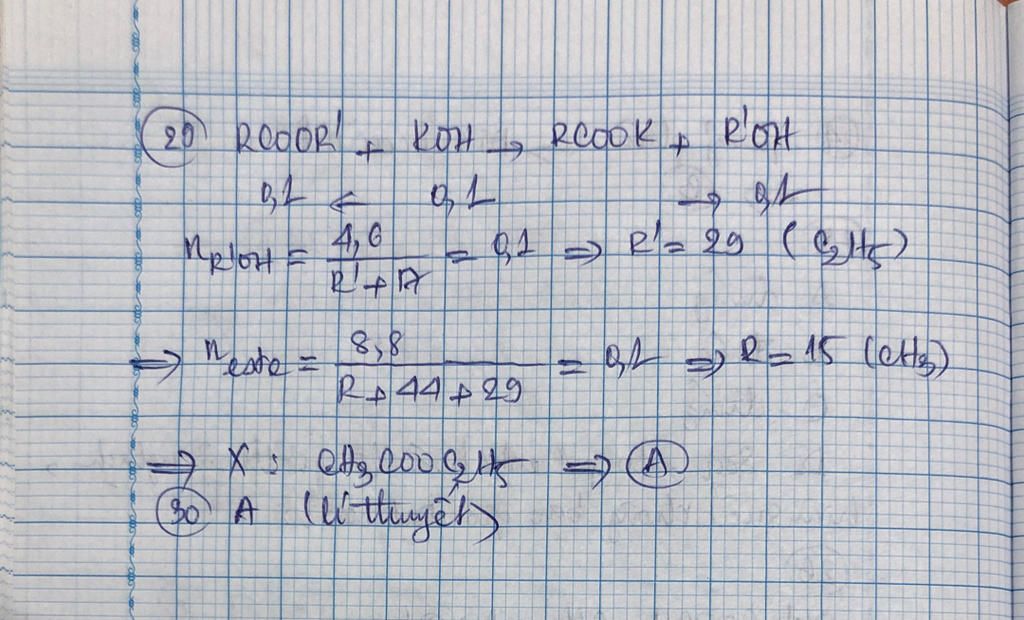 29 RCOOR' + KOH → RCOOK + R'OH
0,1 ← 0,1 → 0,1
n R'OH = 4,6 / R' + 17 = 0,1 ⇒ R' = 29 (C2H5)
⇒ n este = 8,8 / R + 44 + 29 = 0,1 ⇒ R = 15 (CH3)
⇒ X : CH3COOC2H5 ⇒ A
30 A (Lí thuyết)